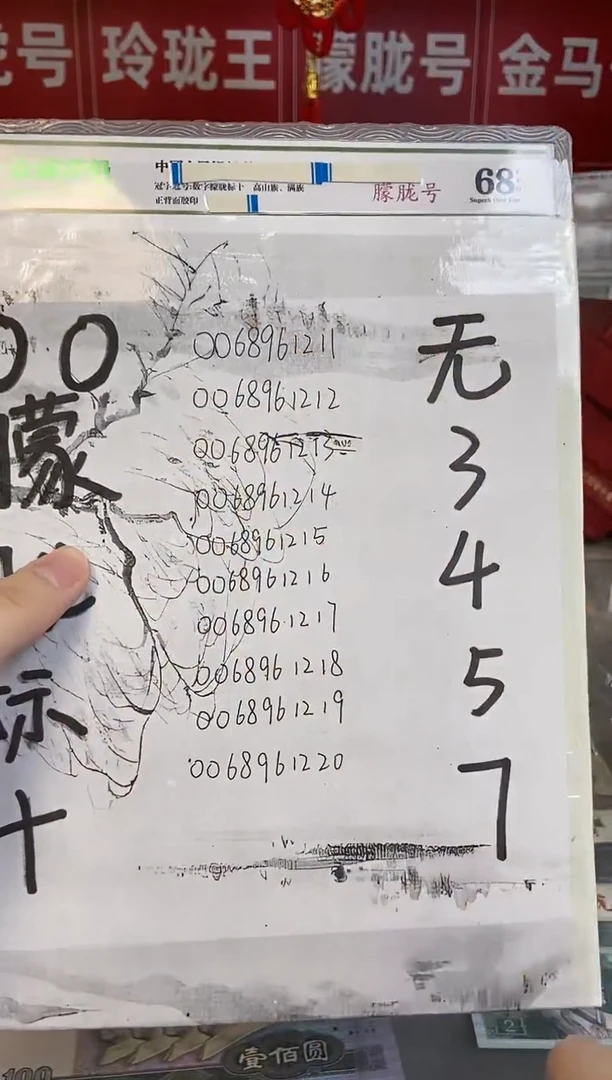 号 玲珑王 朦胧号 金马
68
冠字冠号:数字朦胧标十 高山族、满族
正背面胶印
朦胧号
Superb Gem Unc
00
朦
标
十
0068961211
0068961212
0068961213
0068961214
0068961215
0068961216
0068961217
0068961218
0068961219
0068961220
无
3
4
5
7
100
壹佰圆
2